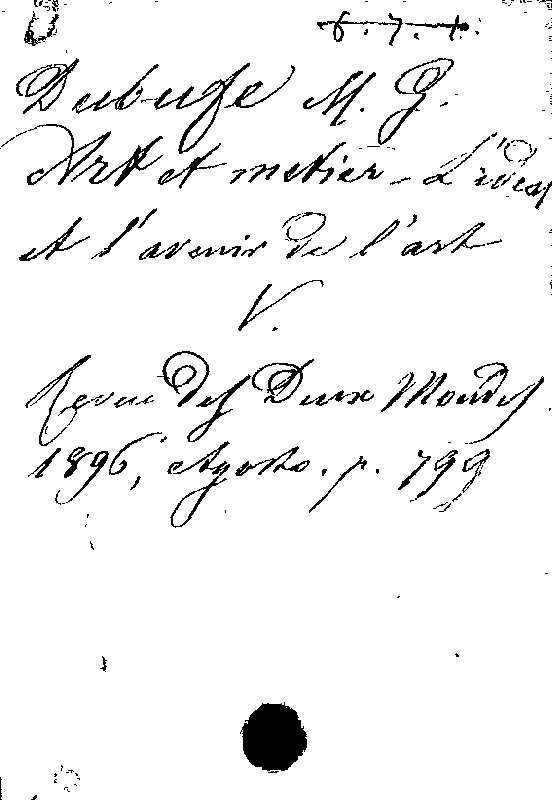 6.7.1.
Dubufe M. G.
Art et metier - L'idéal
et l'avenir de l'art
V.
Revue des Deux Mondes
1896, Agosto. p. 799